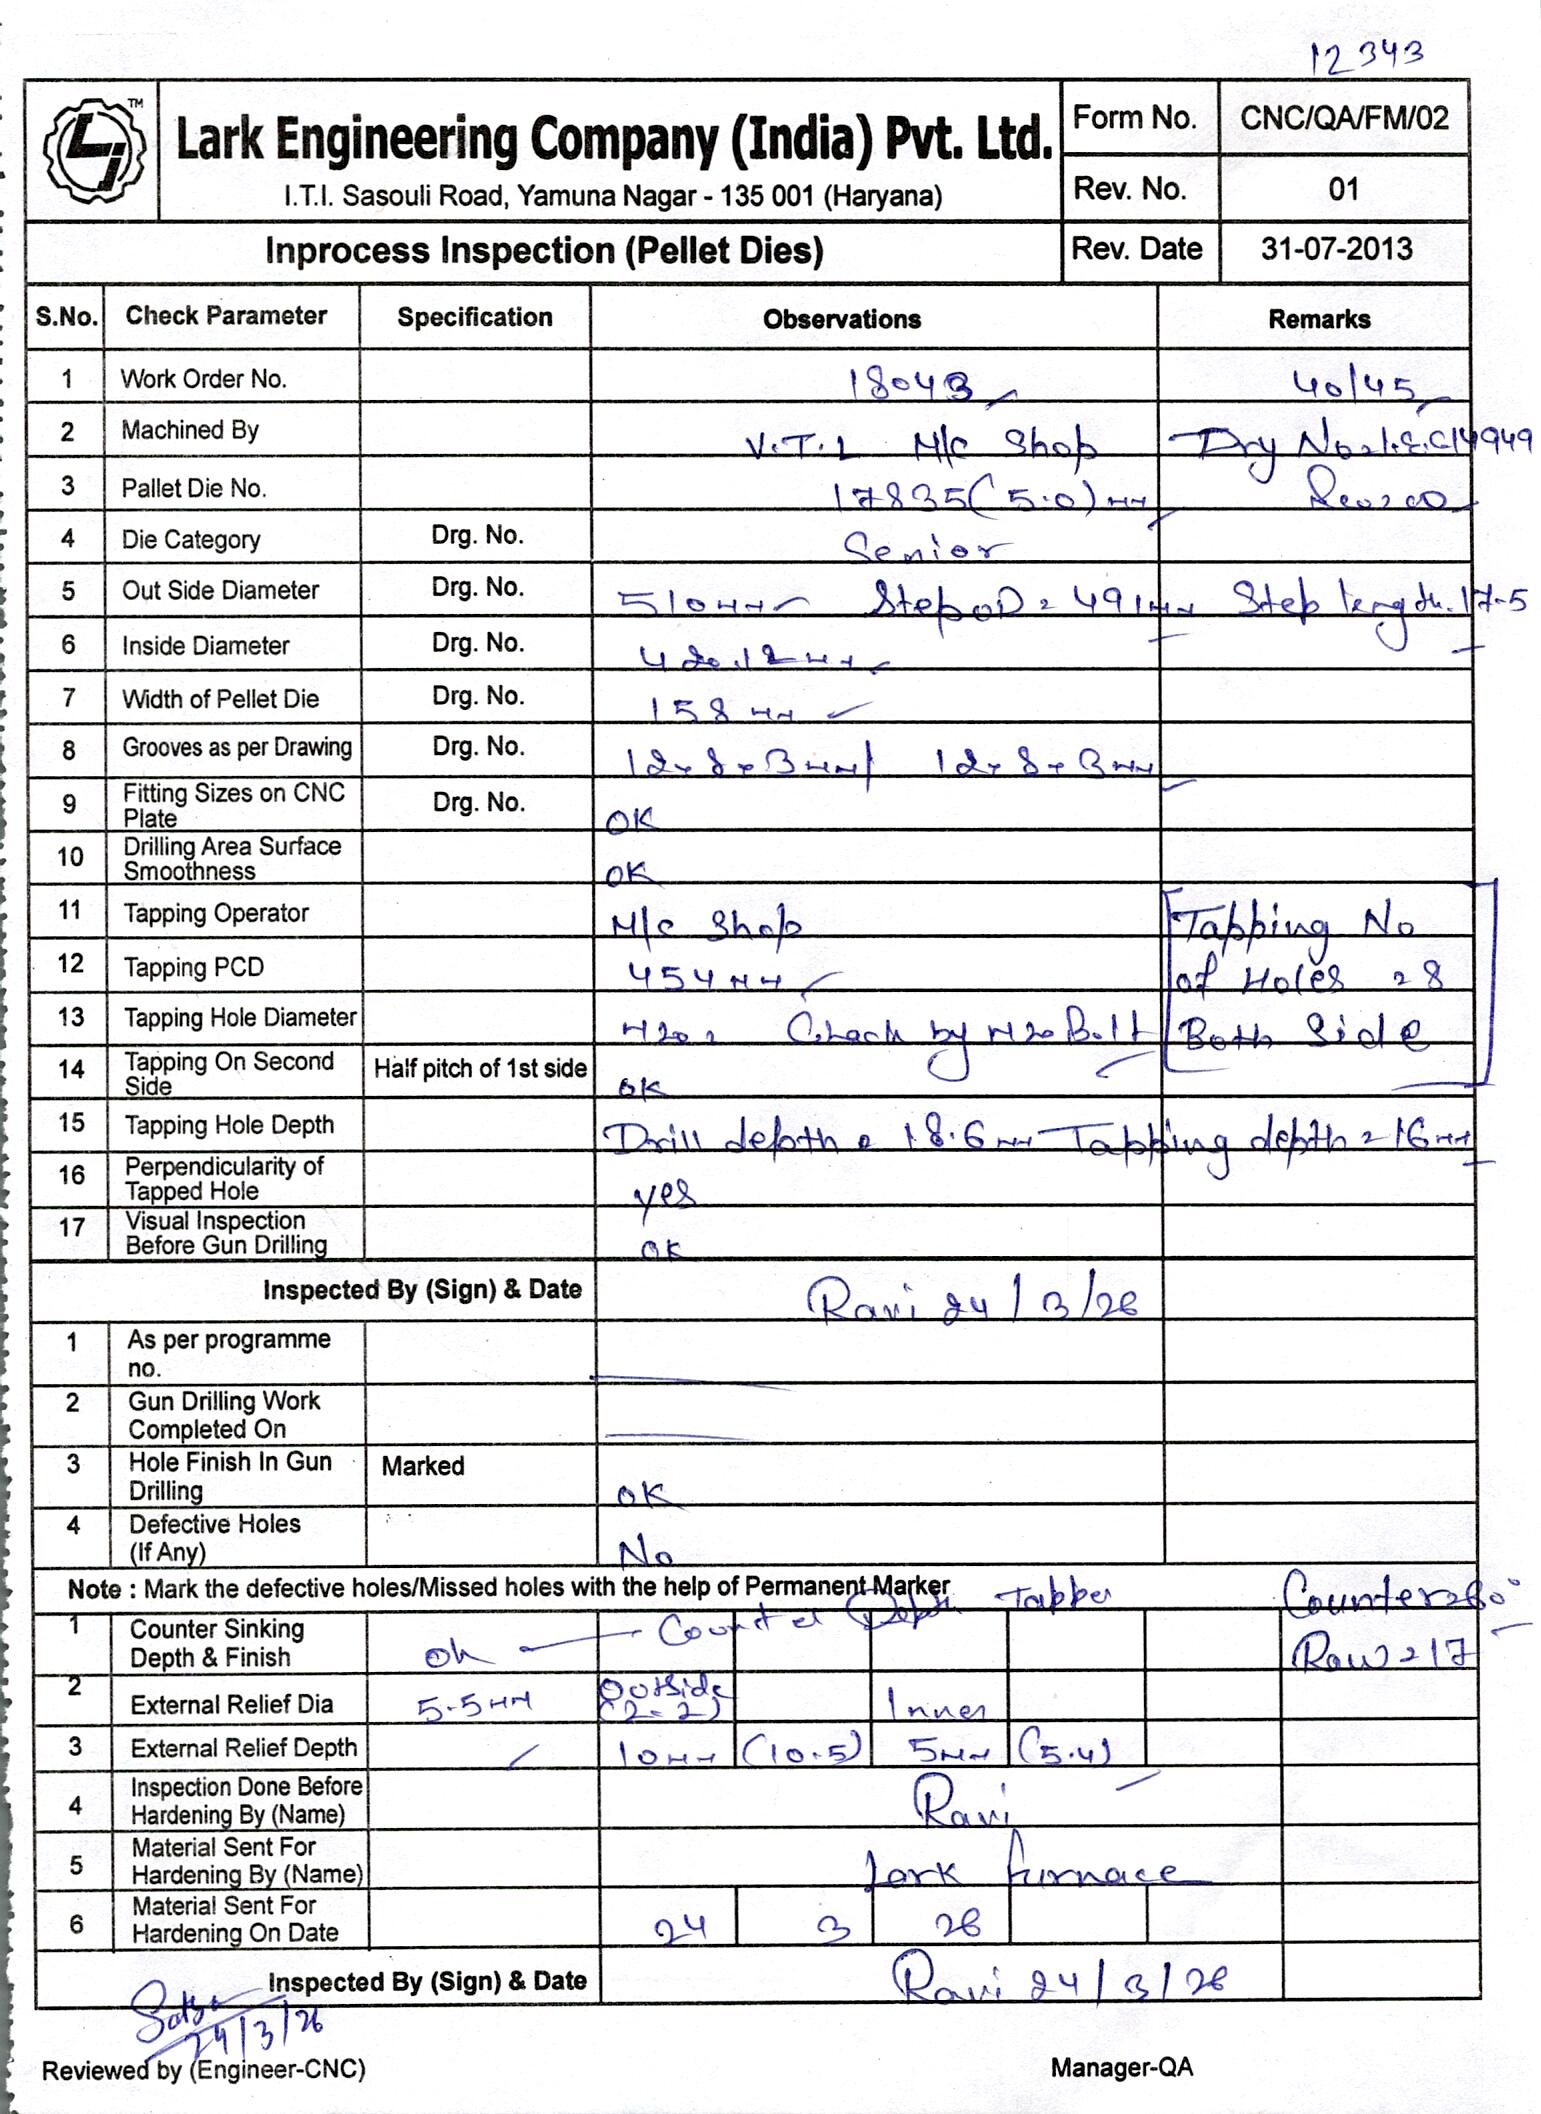 12343
TM
Lark Engineering Company (India) Pvt. Ltd.
I.T.I. Sasouli Road, Yamuna Nagar - 135 001 (Haryana)
Form No. CNC/QA/FM/02
Rev. No. 01
Inprocess Inspection (Pellet Dies) Rev. Date 31-07-2013
S.No. Check Parameter Specification Observations Remarks
1 Work Order No. 18043 40/45
2 Machined By V.T.L M/c Shop Drg No
3 Pallet Die No. 17835 (5.0) mm
4 Die Category Drg. No. Senior
5 Out Side Diameter Drg. No. 510mm Step OD = 491mm Step length. 17-5
6 Inside Diameter Drg. No. 420.12mm
7 Width of Pellet Die Drg. No. 158 mm
8 Grooves as per Drawing Drg. No. 12x8x3mm / 12x8x3mm
9 Fitting Sizes on CNC Plate Drg. No. OK
10 Drilling Area Surface Smoothness OK
11 Tapping Operator M/c Shop Tapping No
12 Tapping PCD 454mm of Holes = 8
13 Tapping Hole Diameter M20 = Check by M20 Bolt Both Side
14 Tapping On Second Side Half pitch of 1st side OK
15 Tapping Hole Depth Drill depth = 18.6mm Tapping depth = 16mm
16 Perpendicularity of Tapped Hole yes
17 Visual Inspection Before Gun Drilling OK
Inspected By (Sign) & Date Ravi 24/3/26
1 As per programme no.
2 Gun Drilling Work Completed On
3 Hole Finish In Gun Drilling Marked OK
4 Defective Holes (If Any) No
Note : Mark the defective holes/Missed holes with the help of Permanent Marker
1 Counter Sinking Depth & Finish Ok Counter Depth Tapper Counter = 60°
Row = 17
2 External Relief Dia 5.5mm Outside (2-2) Inner
3 External Relief Depth 10mm (10.5) 5mm (5.4)
4 Inspection Done Before Hardening By (Name) Ravi
5 Material Sent For Hardening By (Name) Lark furnace
6 Material Sent For Hardening On Date 24 3 26
Inspected By (Sign) & Date Ravi 24/3/26
24/3/26
Reviewed by (Engineer-CNC) Manager-QA